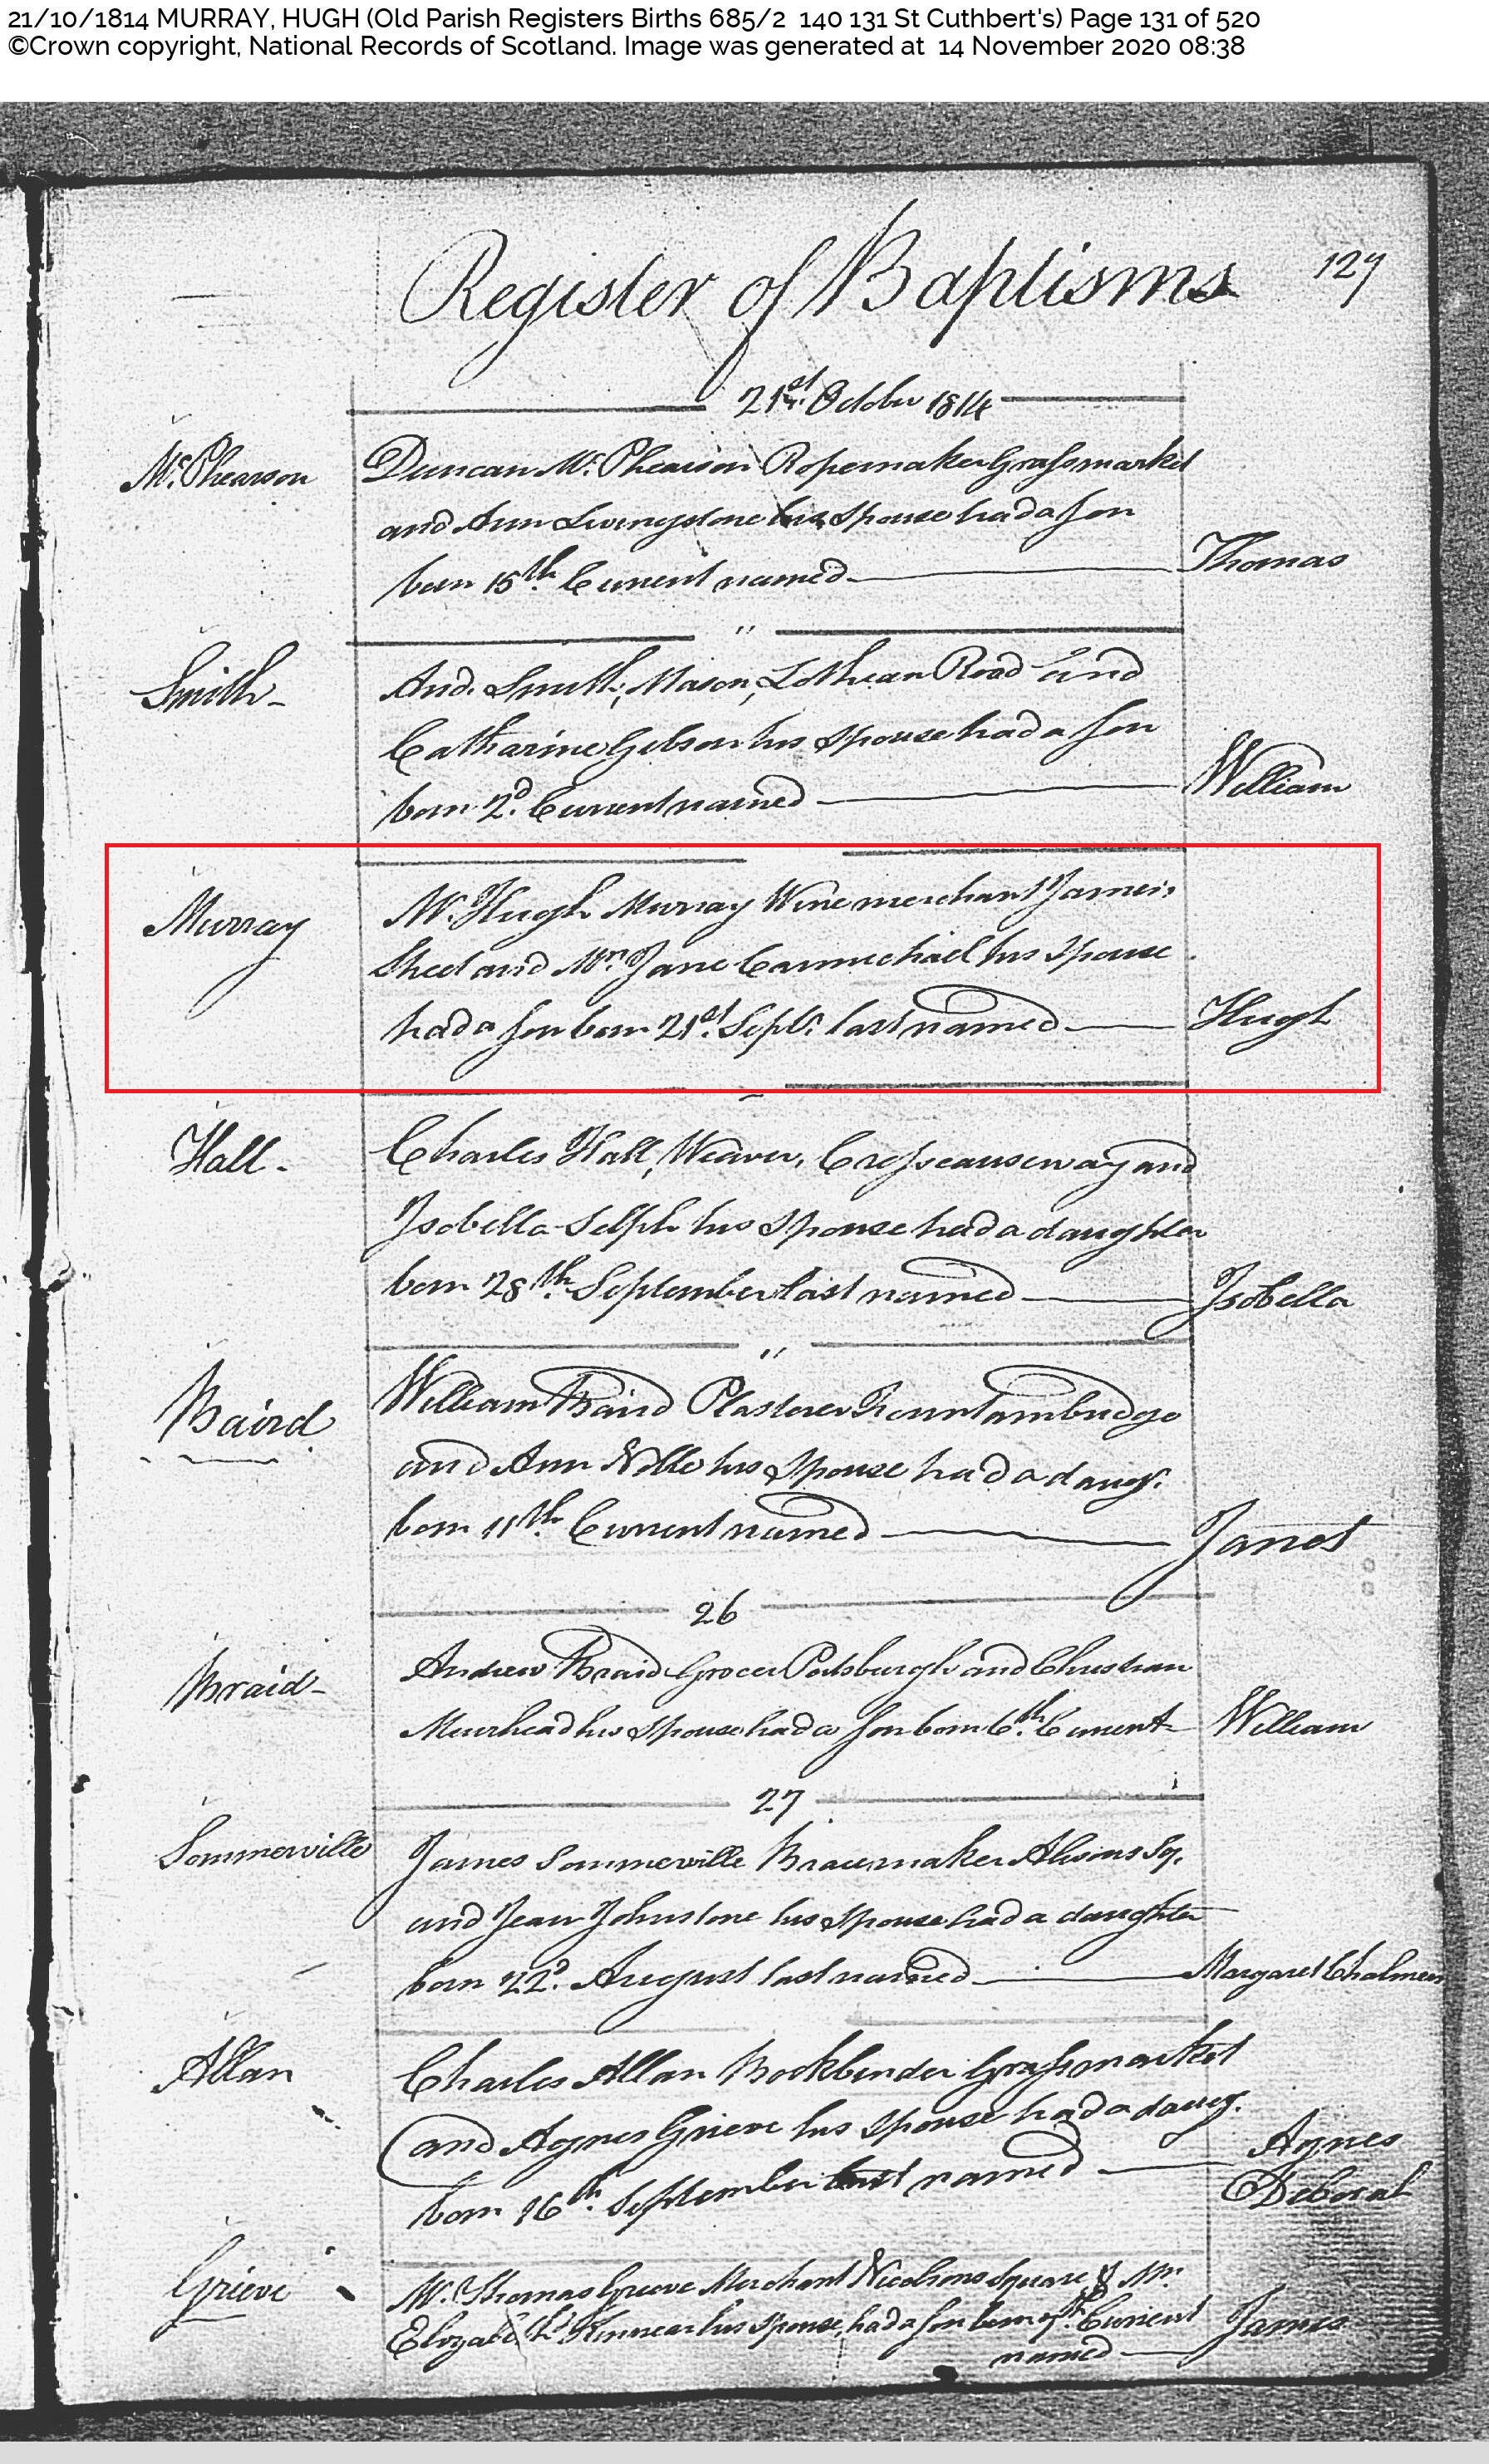 21/10/1814 MURRAY, HUGH (Old Parish Registers Births 685/2 140 131 St Cuthbert's) Page 131 of 520
©Crown copyright, National Records of Scotland. Image was generated at 14 November 2020 08:38
Register of Baptisms 127
21st October 1814
McPhearson Duncan McPhearson Ropemaker Grassmarket
and Ann Livingstone his Spouse had a Son
born 15th Current named Thomas
Smith And. Smith, Mason, Lothian Road and
Catharine Gibson his Spouse had a Son
born 2d. Current named William
Murray Mr. Hugh Murray Wine merchant James's
Street and Mrs. Jane Carmichael his Spouse
had a Son born 21st. Septr. last named Hugh
Hall Charles Hall, Weaver, Crosscauseway and
Isobella Selph his Spouse had a daughter
born 28th. September last named Isobella
Baird William Baird Plasterer Fountainbridge
and Ann his Spouse had a daugr.
born 11th. Current named Janet
26
Braid Andrew Braid Grocer Portsburgh and Christian
Muirhead his Spouse had a Son born 6th. Current William
27
Sommerville James Sommerville Alisons Sq.
and Jean Johnstone his Spouse had a daughter
born 22d. August last named Margaret Chalmers
Allan Charles Allan Bookbinder Grassmarket
and Agnes Grieve his Spouse had a daug.
born 16th. September last named Agnes
Deborah
Grieve Mr. Thomas Grieve Merchant Nicolsons Square & Mrs.
Elizabeth Kinnear his Spouse, had a Son born 7th. Current
named James